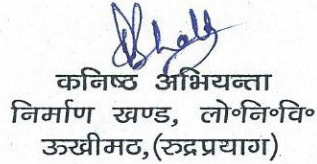 कनिष्ठ अभियन्ता
निर्माण खण्ड, लो॰नि॰वि॰
ऊखीमठ,(रुद्रप्रयाग)